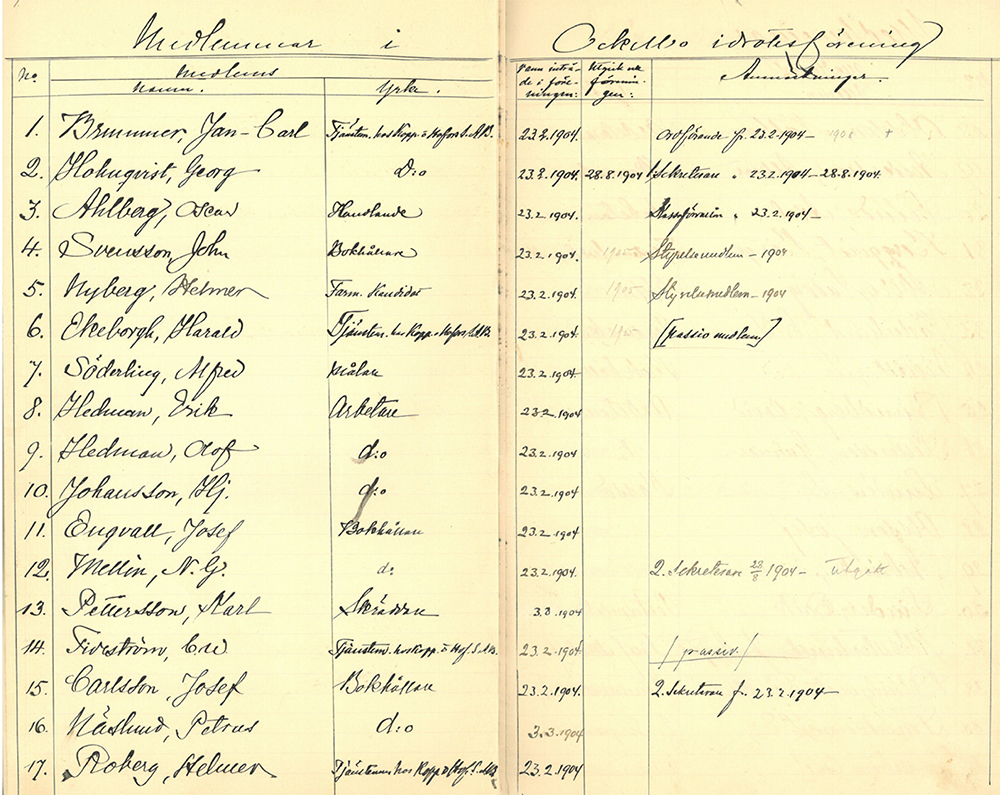 Medlemmar i Ockelbo idrottsförening
No. Medlems Namn. Yrke. Dann inträde i föreningen: Utgick ur föreningen: Anmärkningar.
1. Brummer, Jan-Carl Tjänstem. hos Kopp. o Hofors S.A.B. 23.2.1904. Ordförande fr. 23.2.1904– 1908 +
2. Holmqvist, Georg D:o 23.2.1904. 28.8.1904 Sekreterare " 23.2.1904–28.8.1904.
3. Ahlberg, Oscar Handlande 23.2.1904. Kassaförvaltare " 23.2.1904–
4. Svensson, John Bokhållare 23.2.1904. 1905 Styrelsemedlem – 1904
5. Nyberg, Helmer Farm. Kandidat 23.2.1904. 1905 Styrelsemedlem – 1904
6. Ekeborgh, Harald Tjänstem. hos Kopp. o Hofors S.A.B. 23.2.1904. [passiv medlem]
7. Söderling, Alfred Målare 23.2.1904.
8. Hedman, Erik Arbetare 23.2.1904
9. Hedman, Olof d:o 23.2.1904
10. Johansson, Hj. d:o 23.2.1904
11. Engvall, Josef Bokhållare 23.2.1904
12. Mellin, N.G. d:o 23.2.1904 2. Sekreterare 28/8 1904–. Utgått
13. Pettersson, Karl Skräddare 3.3.1904
14. Tjänstem. hos Kopp. o Hof. S.A.B. 23.2.1904 /passiv/
15. Carlsson, Josef Bokhållare 23.2.1904 2. Sekreterare fr. 23.2.1904–
16. Näslund, Petrus d:o 3.3.1904
17. Roberg, Helmer Tjänstem. hos Kopp. o Hof. S.A.B. 23.2.1904